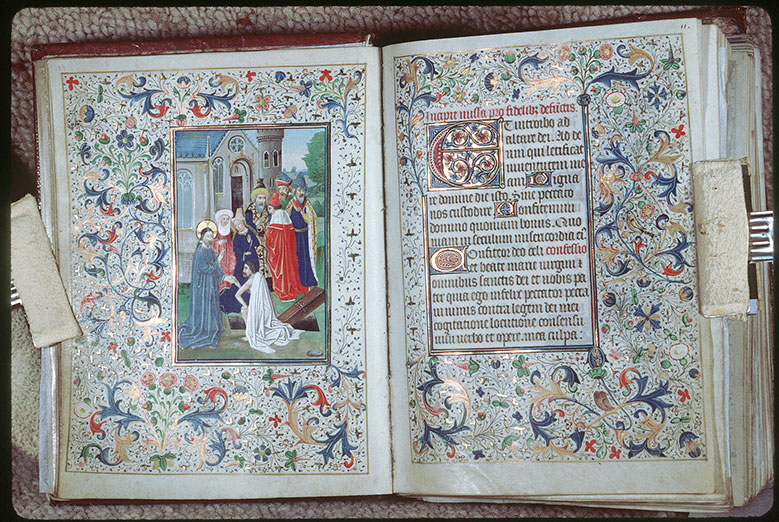 Incipit missa pro fidelibz defuctis
Et introibo ad
altare dei. Ad de
um qui letificat
iuuentutem me
am Digna
re domine die isto sine peccato
nos custodire Confitemini
domino quoniam bonus. Quo
niam in seculum misericordia ei
Confiteor deo celi confessio
et beate marie virgini et
omnibus sanctis dei et vobis pa
ter quia ego infelix peccator pecca
ui nimis contra legem dei mea
cogitatione locutione consensu
uisu verbo et opere. mea culpa.